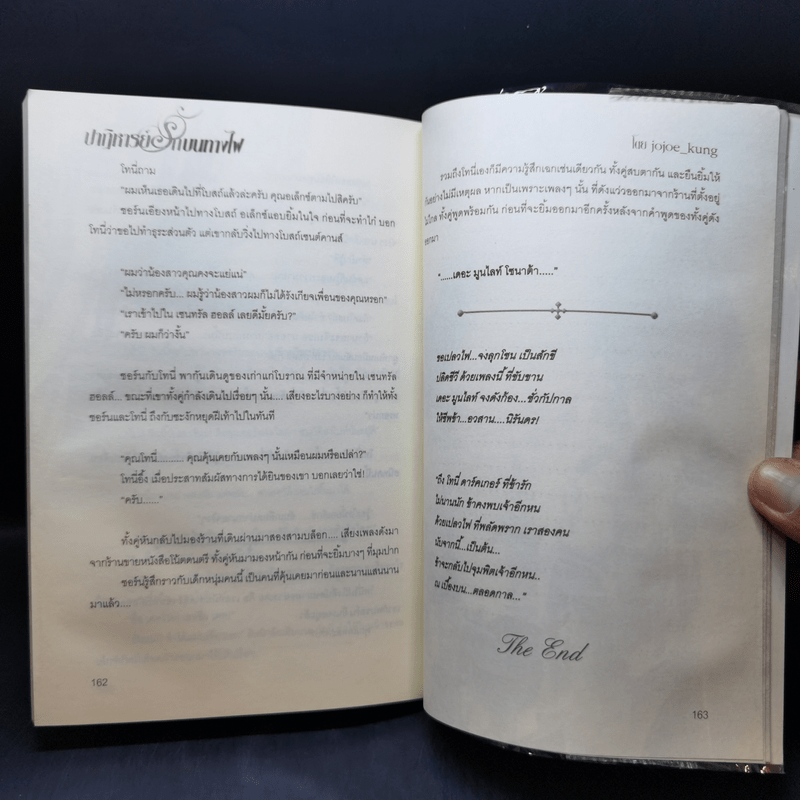 ปาฏิหารย์รักบนทางไฟ
โทนี่ถาม
"ผมเห็นเธอเดินไปที่โบสถ์แล้วล่ะครับ คุณอเล็กซ์ตามไปสิครับ"
ชอร์นเอียงหน้าไปทางโบสถ์ อเล็กซ์แอบยิ้มในใจ ก่อนที่จะทำไก๋ บอก
โทนี่ว่าขอไปทำธุระส่วนตัว แต่เขากลับวิ่งไปทางโบสถ์เซนต์คานส์
"ผมว่าน้องสาวคุณคงจะแย่แน่"
"ไม่หรอกครับ... ผมรู้ว่าน้องสาวผมก็ไม่ได้รังเกียจเพื่อนของคุณหรอก"
"เราเข้าไปใน เซนทรัล ฮอลล์ เลยดีมั้ยครับ?"
"ครับ ผมก็ว่างั้น"
ชอร์นกับโทนี่ พากันเดินดูของเก่าแก่โบราณ ที่มีจำหน่ายใน เซนทรัล
ฮอลล์... ขณะที่เขาทั้งคู่กำลังเดินไปเรื่อยๆ นั้น.... เสียงอะไรบางอย่าง ก็ทำให้ทั้ง
ชอร์นและโทนี่ ถึงกับชะงักหยุดฝีเท้าไปในทันที
"คุณโทนี่........... คุณคุ้นเคยกับเพลงๆ นั้นเหมือนผมหรือเปล่า?"
โทนี่อึ้ง เมื่อประสาทสัมผัสทางการได้ยินของเขา บอกเลยว่าใช่!
"ครับ......"
ทั้งคู่หันกลับไปมองร้านที่เดินผ่านมาสองสามบล็อก.... เสียงเพลงดังมา
จากร้านขายหนังสือโน้ตดนตรี ทั้งคู่หันมามองหน้ากัน ก่อนที่จะยิ้มบางๆ ที่มุมปาก
ชอร์นรู้สึกราวกับเด็กหนุ่มคนนี้ เป็นคนที่คุ้นเคยมาก่อนและนานแสนนาน
มาแล้ว....
162
โดย jojoe_kung
รวมถึงโทนี่เองก็มีความรู้สึกเฉกเช่นเดียวกัน ทั้งคู่สบตากัน และยืนยิ้มให้
กันอย่างไม่มีเหตุผล หากเป็นเพราะเพลงๆ นั้น ที่ดังแว่วออกมาจากร้านที่ตั้งอยู่
ไม่ไกล ทั้งคู่พูดพร้อมกัน ก่อนที่จะยิ้มออกมาอีกครั้งหลังจากคำพูดของทั้งคู่ดัง
ออกมา
"......เดอะ มูนไลท์ โซนาต้า....."
ขอเปลวไฟ...จงลุกโชน เป็นสักขี
ปลิดชีวี ด้วยเพลงนี้ ที่ขับขาน
เดอะ มูนไลท์ จงดังก้อง...ชั่วกัปกาล
ให้ชีพข้า...อวสาน....นิรันดร!
"ถึง โทนี่ ดาร์คเกอร์ ที่ข้ารัก
ไม่นานนัก ข้าคงพบเจ้าอีกหน
ด้วยเปลวไฟ ที่พลัดพราก เราสองคน
นับจากนี้...เป็นต้น...
ข้าจะกลับไปจุมพิตเจ้าอีกหน..
ณ เบื้องบน...ตลอดกาล..."
The End
163